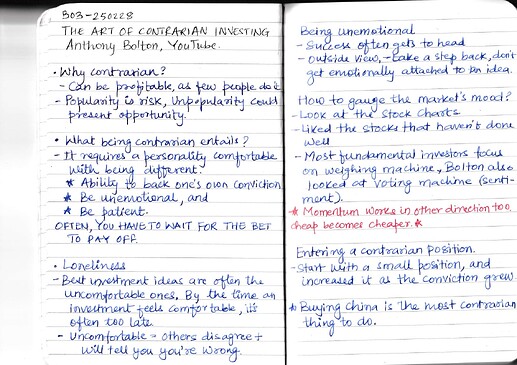 303-250228
THE ART OF CONTRARIAN INVESTING
Anthony Bolton, YouTube.
• Why contrarian?
- Can be profitable, as few people do it
- Popularity is risk, Unpopularity could
present opportunity.
• What being contrarian entails?
- It requires a personality comfortable
with being different.
* Ability to back one's own conviction
* Be unemotional, and
* Be patient.
OFTEN, YOU HAVE TO WAIT FOR THE BET
TO PAY OFF.
• Loneliness
- Best investment ideas are often the
uncomfortable ones. By the time an
investment feels comfortable, it's
often too late.
- Uncomfortable = others disagree +
will tell you you're wrong.
Being unemotional
- Success often gets to head
- Outside view, - take a step back, don't
get emotionally attached to an idea.
How to gauge the market's mood?
- Look at the stock charts
- Liked the stocks that haven't done
well
- Most fundamental investors focus
on weighing machine, Bolton also
looked at voting machine (senti-
ment).
* Momentum works in other direction too,
cheap becomes cheaper. *
Entering a contrarian position.
- Start with a small position, and
increased it as the conviction grew.
* Buying China is the most contrarian
thing to do.